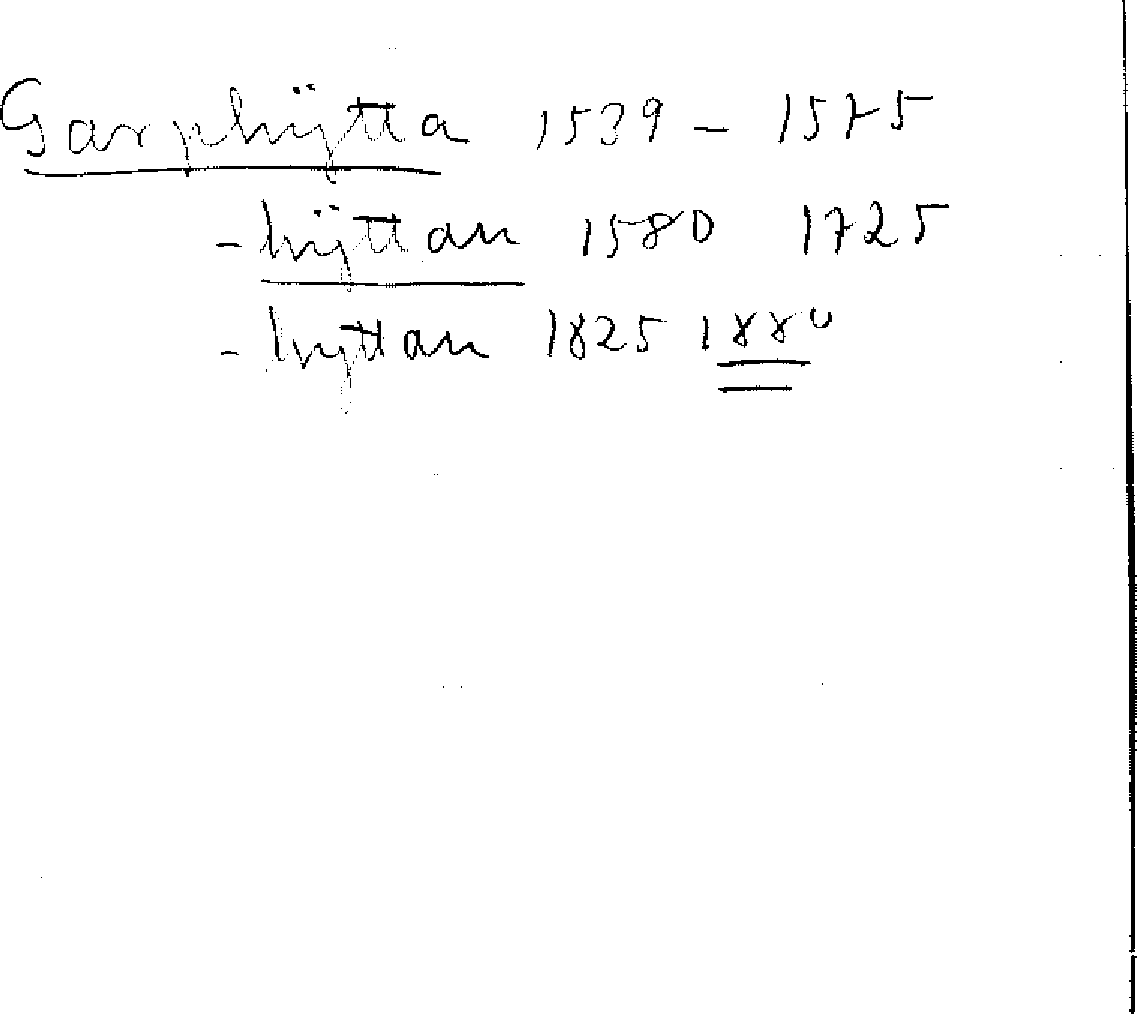 Garphÿtta 1539 – 1575
- hÿttan 1580 1725
- hyttan 1825 1880